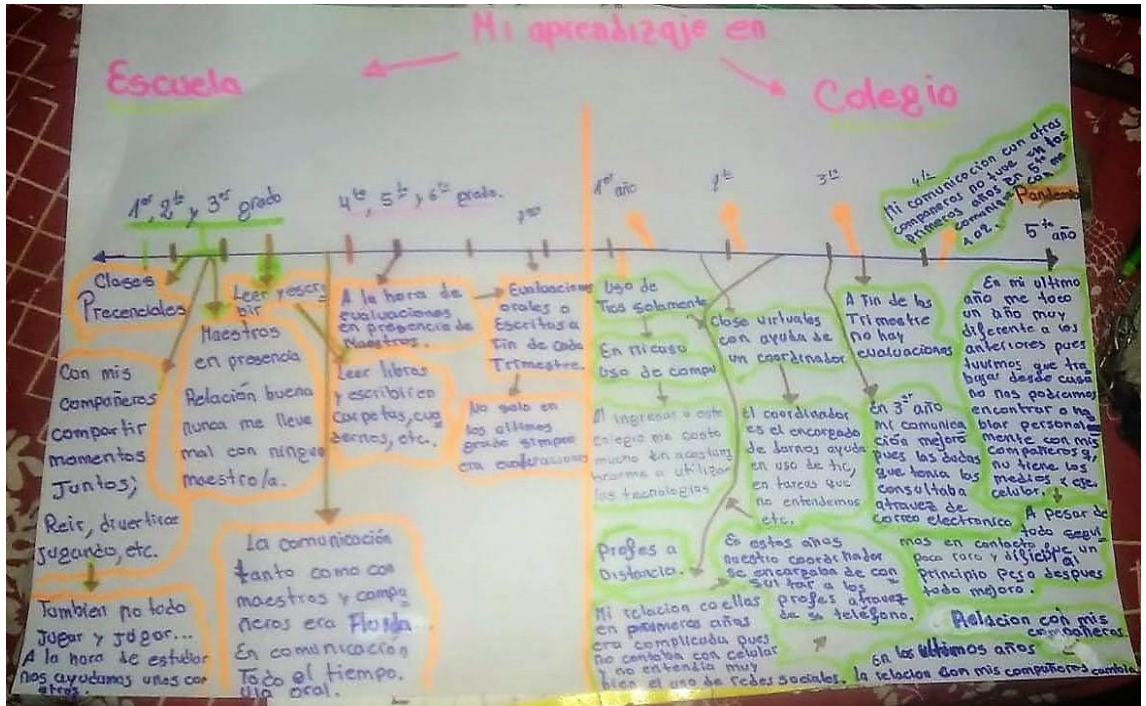 Mi aprendizaje en
Escuela
Colegio
1er, 2do y 3er grado
4to, 5to y 6to grado.
1er año
3ro
4to
5to año
Pandemia
Mi comunicacion con otros
compañeros no tuve en los
primeros años en 5to
comunique con me
Clases
Precenciales
Con mis
compañeros
compartir
momentos
Juntos;
Reir, divertirse
jugando, etc.
Tambien no todo
Jugar y jugar...
A la hora de estudiar
nos ayudamos unos con
otros.
Leer y escri
bir
Maestros
en presencia
Relación buena
nunca me lleve
mal con ningun
maestro/a.
Leer libros
y escribir en
carpetas, cua
dernos, etc.
La comunicación
tanto como con
maestros y compa
ñeros era Fluida
En comunicación
Todo el tiempo.
via oral.
A la hora de
evaluaciones
en presencia de
Maestros.
Evaluaciones
orales o
Escritos a
Fin de cada
Trimestre.
No solo en
los ultimos
grado siempre
era evaluaciones
Uso de
Tics solamente
En mi caso
uso de compu
Al ingresar a este
colegio me costo
mucho en acostum
brarme a utilizar
las tecnologias
Profes a
Distancia.
Mi relacion co ellos
en primeros años
era complicada pues
no contaba con celular
y no entendia muy
bien el uso de redes sociales.
Clase virtuales
con ayuda de
un coordinador
El coordinador
es el encargado
de darnos ayuda
en uso de tic,
en tareas que
no entendemos
etc.
En estos años
nuestro coordinador
se encargaba de con
sultar a los
profes atravez
de su telefono.
A Fin de los
Trimestre
no hay
evaluaciones
En 3er año
mi comunica
ción mejoro
pues las dudas
que tenia las
consultaba
atravez de
correo electronico
En mi ultimo
año me toco
un año muy
diferente a los
anteriores pues
tuvimos que tra
bajar desde casa
no nos podiamos
encontrar o ha
blar personal
mente con mis
compañeros
no tiene los
medios x eje.
celular.
A pesar de
todo segui
mos en contacto fue un
poco raro y dificil al
principio pero despues
todo mejoro.
Relacion con mis
compañeros.
En los ultimos años
la relacion con mis compañeros cambio